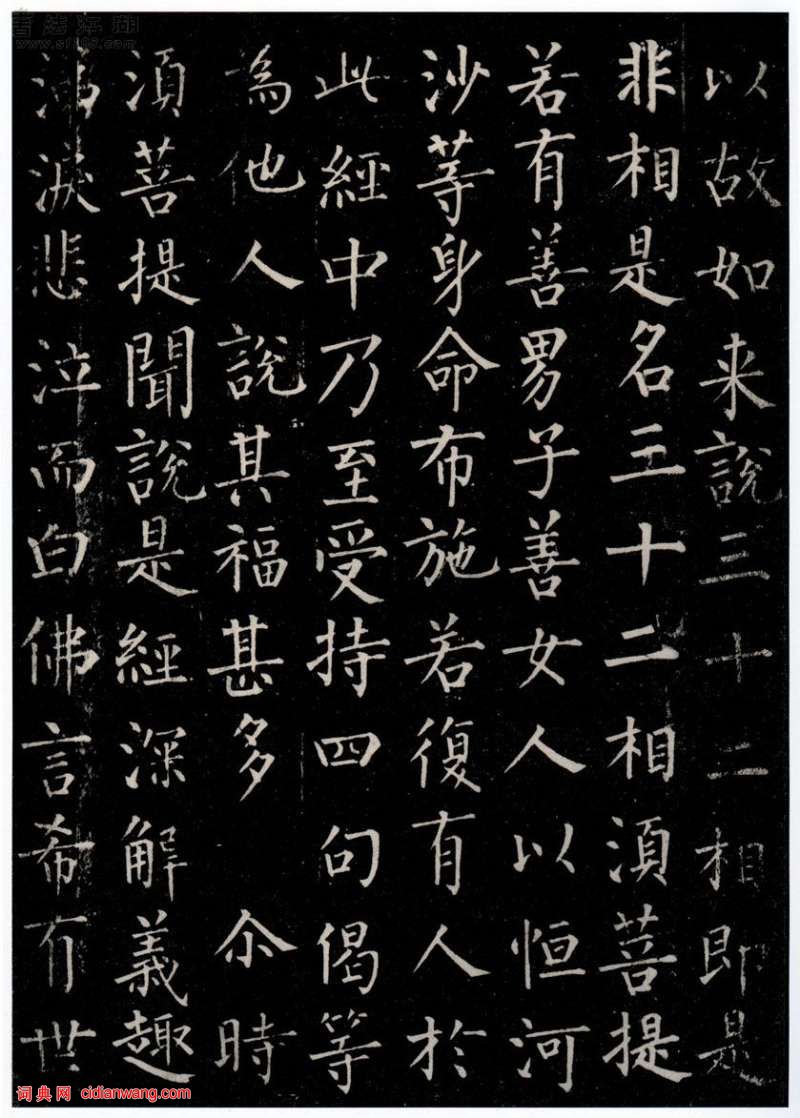 以故如来說三十二相即是
非相是名三十二相須菩提
若有善男子善女人以恒河
沙等身命布施若復有人於
此經中乃至受持四句偈等
為他人說其福甚多 尒時
須菩提聞說是經深解義趣
涕淚悲泣而白佛言希有世
词典网 cidianwang.com